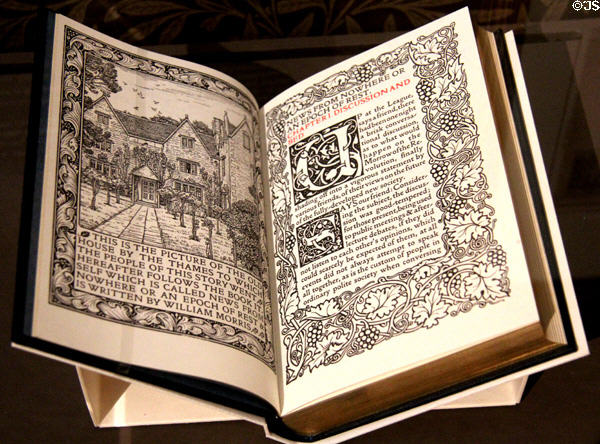 ©JS
THIS IS THE PICTURE OF THE OLD
HOUSE BY THE THAMES TO WHICH
THE PEOPLE OF THIS STORY WENT
HEREAFTER FOLLOWS THE BOOK IT-
SELF WHICH IS CALLED NEWS FROM
NOWHERE OR AN EPOCH OF REST &
IS WRITTEN BY WILLIAM MORRIS
NEWS FROM NOWHERE OR
AN EPOCH OF REST.
CHAPTER I. DISCUSSION AND
BED.
UP at the League,
says a friend, there
had been one night
a brisk conversa-
tional discussion,
as to what would
happen on the
Morrow of the Re-
volution, finally
shading off into a vigorous statement by
various friends, of their views on the future
of the fully-developed new society.
SAYS our friend: Consider-
ing the subject, the discus-
sion was good-tempered;
for those present, being used
to public meetings & after-
lecture debates, if they did
not listen to each other's opinions, which
could scarcely be expected of them, at all
events did not always attempt to speak
all together, as is the custom of people in
ordinary polite society when conversing